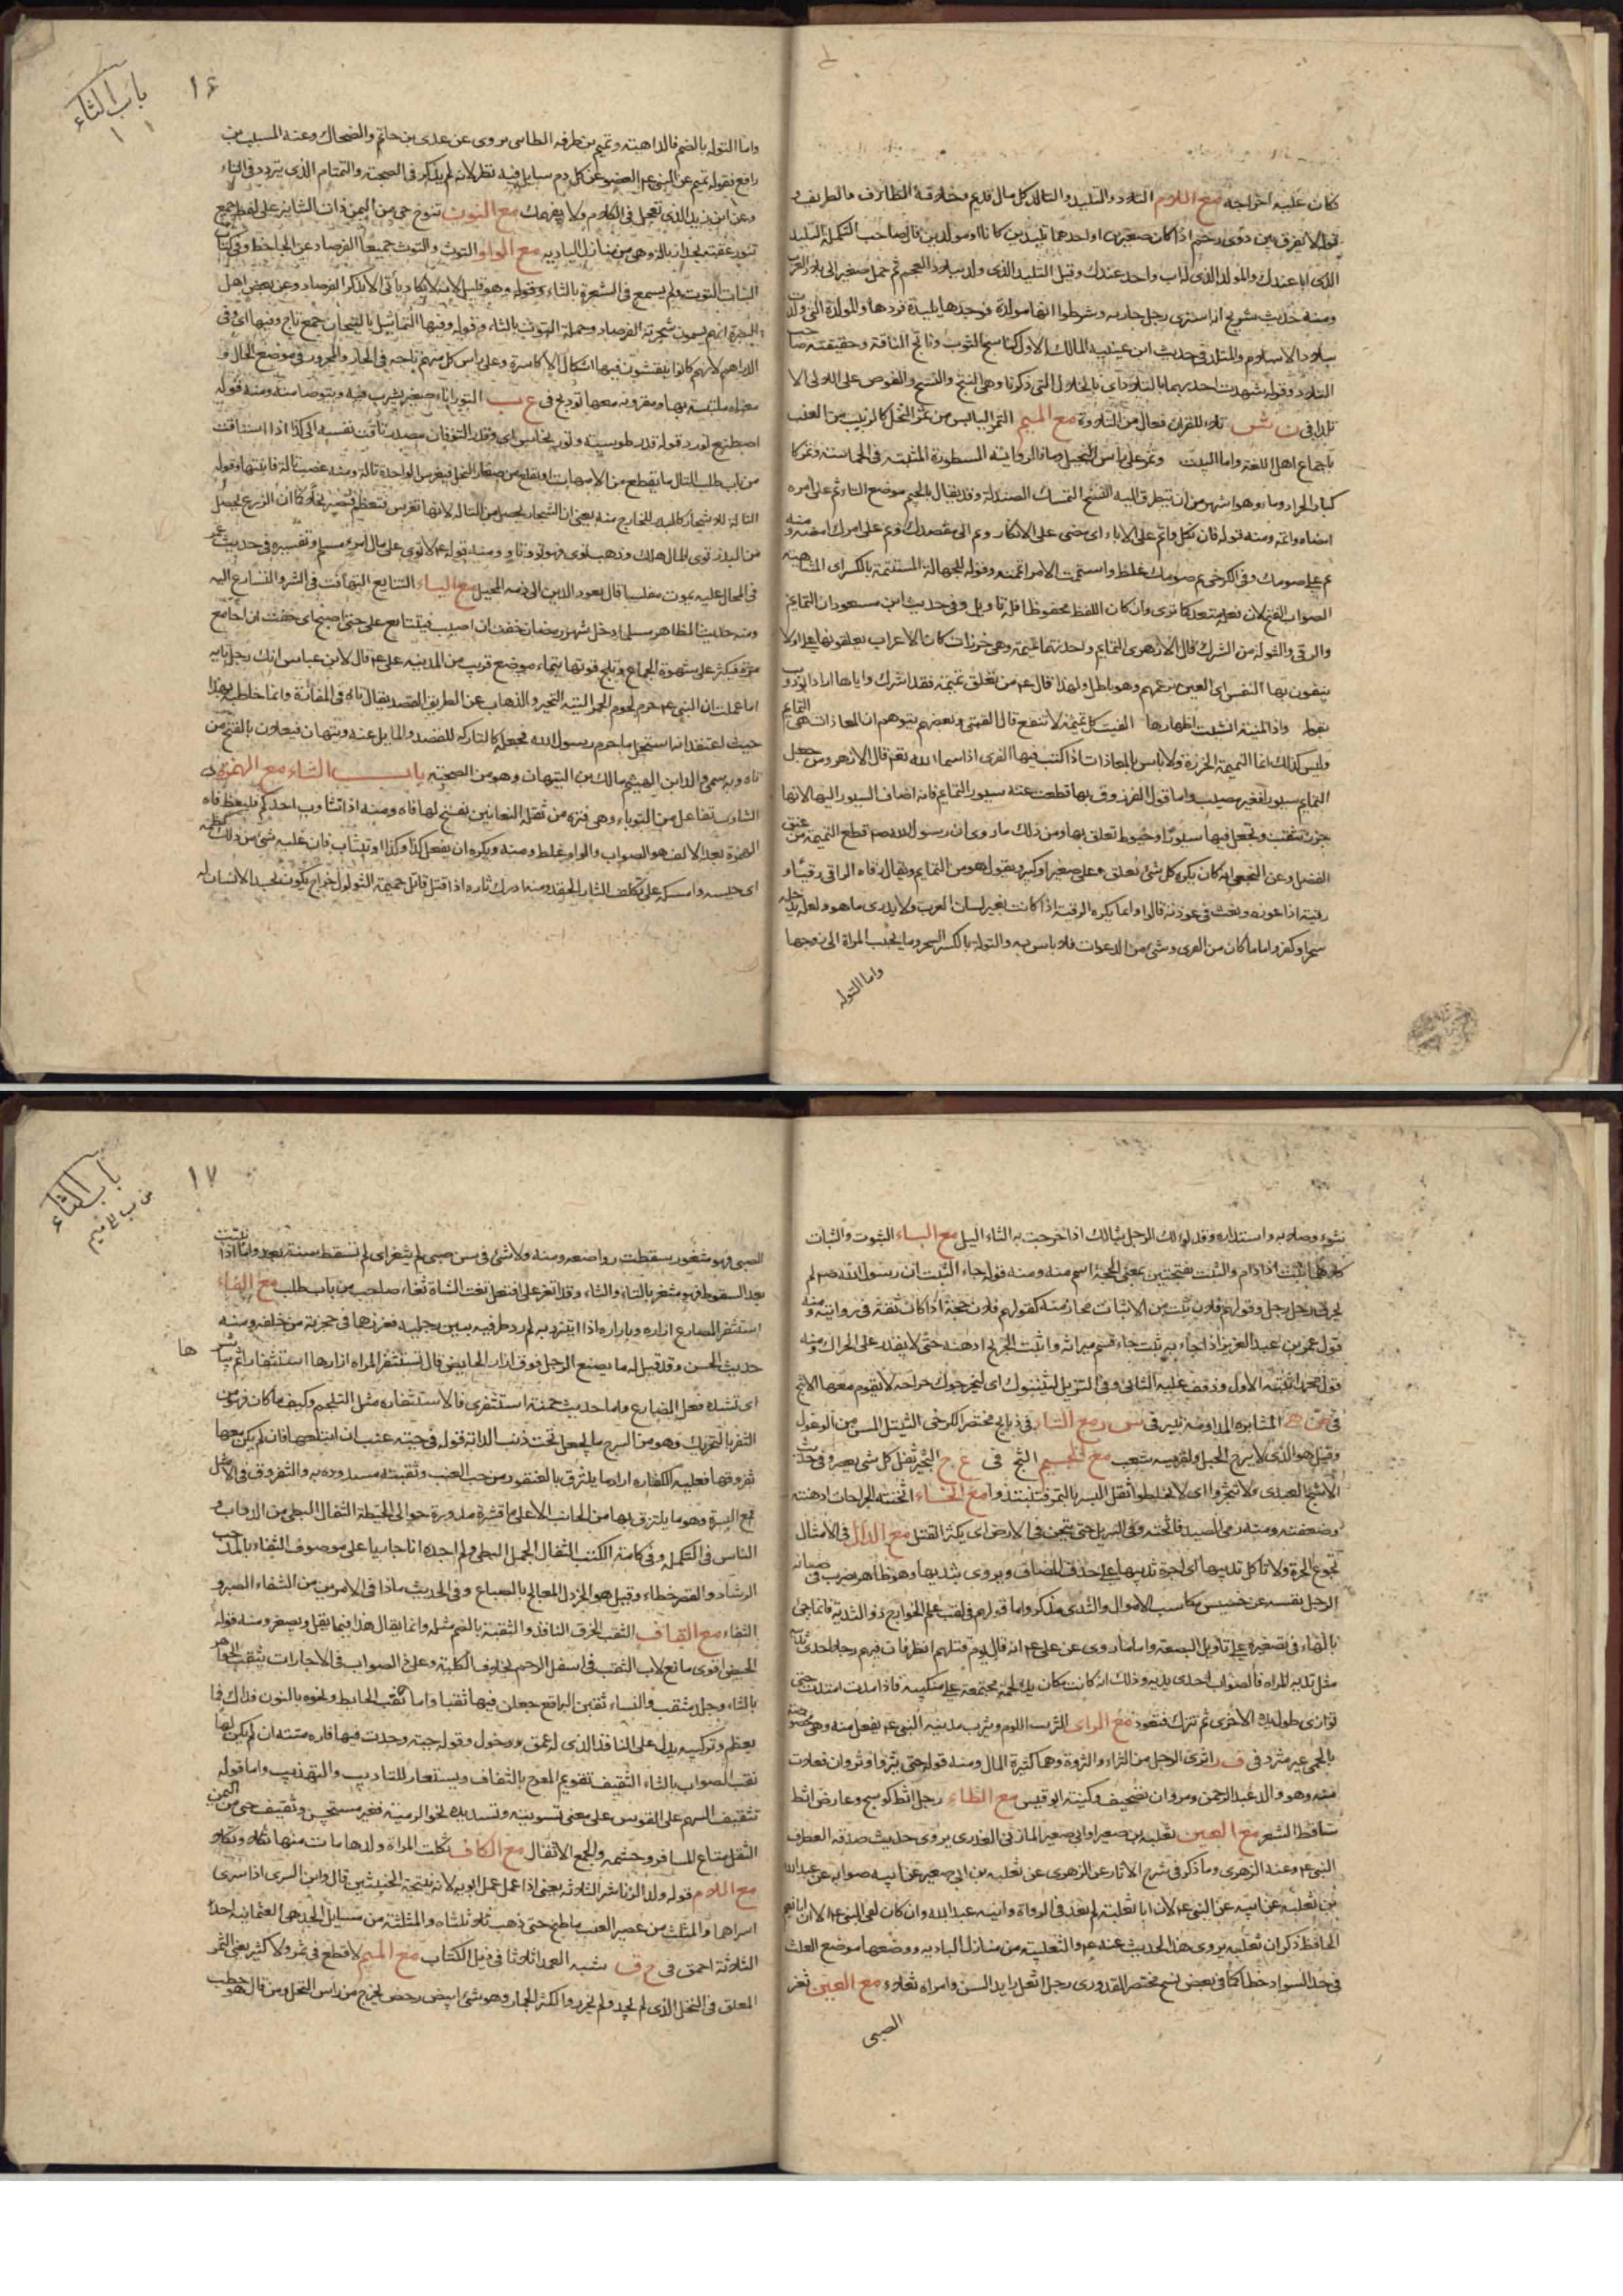 كان عليه اخراجه مع اللام التلاد والتليد والتالد كل مال قديم وخلافه الطارف والطريف و
قوله لا يفرق بين ذوى رحم اذا كان صغيرين او احدهما تليدين كانا او مولدين قال صاحب التكملة التليد
الذى اباه عندك والمولد الذى له اب واحد عندك وقيل التليد الذى ولد ببلاد العجم ثم حمل صغيرا الى بلاد العرب
ومنه حديث شريح ان اشترى رجل جارية وشرطوا انها مولدة فوجدها تليدة فردها والمولدة التى ولدت
ببلاد الاسلام والمتلد فى حديث ابن عيينة المالك الاول كناسج الثوب وناتج الناقة وحقيقته صاحب
التلاد وقوله شهدت احديهما بالتلاد اى بالخلاول التى ذكرنا وهى النتج والنسج والغوص على اللالى الا
تلاد فى ن ش تلاء للقران فعال من التلاوة مع الميم التمر اليابس من ثمر النخل كالزبيب من العنب
باجماع اهل اللغة واما البيت وتمر على راس النخيل وماء فالرواية المسطورة المثبتة فى الحماسة وثمر كا
كباد الجراد وماء وهو اشهر من ان يتطرق اليه النسخ التمسك الصندلة وقد يقال بالجيم موضع التاء ثم على امره
امضاه واتمه ومنه قوله فان نكل واتم على الاباء اى مضى على الانكار وتم الى مقصدك وتم على امرك امضه ومنه
تم على صومك وفى الكرخى تم صومك غلط واستتمت الامر اتممته وقوله للجهالة المستتمة بالكسر اى المتناهية
الصواب الفتح لان فعله متعد كما ترى وان كان اللفظ محفوظا فله تاويل وفى حديث ابن مسعود ان التمائم
والرقى والتولة من الشرك قال الازهرى التمايم واحدتها تميمة وهى خرزات كان الاعراب يعلقونها على اولا
ينفون بها النفس اى العين بزعمهم وهو باطل ولهذا قال عم من تعلق تميمة فقد اشرك واياها اراد ابو ذؤيب
بقوله واذا المنية انشبت اظفارها الفيت كل تميمة لا تنفع قال القتبى وبعضهم يتوهم ان المعاذات هى التمايم
وليس كذلك انما التميمة الخرزة ولا باس بالمعاذات اذا كتب فيها القران او اسماء الله تعم قال الازهرى ومن جعل
التمايم سيورا فغير مصيب واما قول الفرزدق بها قطعت عنه سيور التمايم فانه اضاف السيور اليها لانها
خرز تثقب وتجعل فيها سيورا وخيوط تعلق بها ومن ذلك ما روى ان رسول الله صم قطع التميمة من عنق
الفضل وعن النخعى انه كان يكره كل شئ تعلق على صغير او كبير ويقول هو من التمايم ويقال رقاه الراقى رقيا و
رقية اذا عوذه ونفث فى عوذته قالوا وانما يكره الرقية اذا كانت بغير لسان العرب ولا يدرى ما هو ولعله يدخله
سحرا وكفر واما ما كان من القران وشئ من الدعوات فلا باس به والتولة بالكسر السحر وما يحبب المراة الى زوجها
واما التوله
باب الثاء
١٦
واما التوله بالضم فالداهية وتميم بن طرفه الطائى يروى عن عدى بن حاتم والضحاك وعنه المسيب بن
رافع نقوله تميم عن النبى عم العضو عن كل دم سايل فيه نظر لانه لم يذكر فى الصحبة والتمتام الذى يتردد فى التاء
وعن ابى زيد الذى تعجل فى الكلام ولا يفهمك مع النون تنوخ حى من اليمن
مع الواو التوث والتوت جميعا الفرصاد عن الجاحظ وفى كتاب
النبات التوت ولم يسمع فى الشعر الا بالثاء وقوله وهو قليل لانه لا يكاد ياتى الا بذكر الفرصاد وعن بعض اهل
البصرة انهم يسمون شجرته الفرصاد وحمله التوث بالثاء وقوله وفيها التماثيل بالتيجان جمع تاج وفيها اى وفى
الدراهم لانهم كانوا ينقشون فيها اشكال الاكاسرة وعلى راس كل منهم تاجه فى الجار والمجرور فى موضع الحال و
معناه ملتبسة بها ومقرونة معها تودج فى ع ب التور اناء صغير يشرب فيه ويتوضا منه ومنه قوله
اصطنع تور وقوله قدر طوسية وتور نحاس اى وقدر التوقان مصدر تاقت نفسه الى كذا اذا اشتاقت
من باب طلب التال ما يقطع من الامهات او يقلع من صغار النخل فيغرس الواحدة تالة ومنه غصب تالة فانبتها وقوله
التالة للاشجار كالبذر للخارج منه يعنى ان الشجار يحصل من التالة لانها تغرس فتعظم فتصير نخلا كما ان الزرع يحصل
من البذر توى المال هلك وذهب توى فهو تو وتاو ومنه قوله عم لا توى على مال امرء مسلم وتفسيره فى حديث
فى المحال عليه يموت مفلسا قال يعود الدين الى ذمه المحيل مع الياء التتايع التهافت فى الشر والتسارع اليه
ومنه حديث المظاهر مسلم ادخل شهر رمضان خفت ان اصيب فيتتايع على حتى اصبح اى خفت ان اجامع
مرة فيكثر على شهوة الجماع ويلج قوتها تيماء موضع قريب من المدينة على عم قال لابن عباس انك رجل تايه
اما علمت ان النبى عم حرم لحوم الحمر التيه التحير والذهاب عن الطريق القصد يقال تاه فى المفازة وانما خاطبه بهذا
حيث اعتقد انه استحل ما حرم رسول الله فجعله كالتارك للقصد والمايل عنه وتيهان فيعلان بالفتح من
تاه وبه سمى والد ابى الهيثم مالك بن التيهان وهو من الصحبة باب الثاء مع الهمزه
التثاوب تفاعل من الثوباء وهى فترة من ثقلة النعاس يفتح لها فاه ومنه اذا تثاوب احدكم فليغط فاه
الهمزة بعد الالف هو الصواب والواو غلط ومنه ويكره ان يفعل كذا وكذا او يتثاب فان غلبه شئ من ذلك كظمه
اى حبسه وامسكه على تكلف الثار الحقد ومنه ادرك ثاره اذا قتل قاتل حميمه الثولول خراج يكون بجسد الانسان له
نتوء وصلابه واستداره وقد ثؤلل الرجل ثئاليل اذا خرجت به الثاء اليل مع الباء الثبوت والثبات
كلاهما ثبت اذا دام والثبت بفتحتين بمعنى الحجة اسم منه ومنه قوله جاء الثبت ان رسول الله صم لم
يحرق رحل رجل وقولهم فلان ثبت من الاثبات مجاز منه كقولهم فلان حجة اذا كان ثقة فى روايته ومنه
قول عمر بن عبد العزيز اذا جاء به ثبت جاء قسم ميراثه واثبت الجريح اوهنه حتى لا يقدر على الحراك ومنه
قول محمد اثبته الاول وذفف عليه الثانى وفى التنزيل ليثبتوك اى ليجرحوك جراحه لا يقوم معها الاثبج
فى ص ه المثابره المداومه ثبير فى س ر مع التاء فى ذبايح مختصر الكرخى الثيتل المسن من الوعول
وقيل هو الذى لا يبرح الجبل ولقرنيه شعب مع الجيم الثج فى ع ج الثجير ثفل كل شئ يعصر وفى حديث
الاشج العبدى ولا تثجروا اى لا تخلطوا ثفل البسر بالتمر فتنتبذوا مع الخاء اثخنته الجراحات اوهنته
وضعفته ومنه رمى الصيد فاثخنه وفى التنزيل حتى يثخن فى الارض اى يكثر القتل مع الدال فى الامثال
تجوع الحرة ولا تاكل ثدييها اى اجرة ثدييها على حذف المضاف ويروى بثدييها وهو ظاهر يضرب فى صيانة
الرجل نفسه عن خسيس مكاسب الاموال والثدى مذكر واما قولهم فى لقب علم الخوارج ذو الثديه فانما جئ
بالهاء فى تصغيره على تاويل البضعة واما ما روى عن على عم انه قال يوم قتلهم انظروا فان فيهم رجلا احدى ثدييه
مثل ثديى المراه فالصواب احدى يديه وذلك انه كانت مكان يده لحمة مجتمعة على منكبيه فاذا مدت امتدت حتى
توازى طول يده الاخرى ثم تترك فتعود مع الراء الثرب اللوم ويثرب مدينة النبى عم يفعل منه وهى مخصوصة
بالحمى غير مثرد فى ف ر اثرى الرجل من الثراء والثروة وهما كثيرة المال ومنه قوله حتى يثروا وثروان فعلان
منه وهو والد عبد الرحمن ومروان تصحيف وكنيته ابو قيس مع الطاء رجل اثط كوسج وعارض اثط
ساقط الشعر مع العين ثعلبه بن صعير او ابى صعير المازنى العذرى يروى حديث صدقه الفطر عن
النبى عم وعنه الزهرى وما ذكر فى شرح الاثار عن الزهرى عن ثعلبه بن ابى صعير عن ابيه صوابه عن عبد الله
بن ثعلبه عن ابيه عن النبى عم لان ابا ثعلبة لم يعد فى الرواة وابنه عبد الله وان كان لقى النبى عم الا ان ابا نعيم
الحافظ ذكر ان ثعلبه يروى هذا الحديث عنه عم والثعلبية من منازل البادية ووضعها موضع العلث
فى حد السواد خطا كما فى بعض نسخ مختصر القدورى رجل اثعل زايد السن وامراه ثعلاء مع الغين ثغر
الصبى
باب الثاء
من ب الى ميم
١٧
الصبى فهو مثغور سقطت رواضعه ومنه ولا شئ فى سن صبى لم يثغر اى لم تسقط سنه بعد واذا نبتت
بعد السقوط فهو مثغر بالتاء والثاء وقد اثغر على افتعل ثغت الشاة ثغاء صاحت من باب طلب مع الفاء
استثفر المصارع ازاره وبازاره اذا ايتزر به ثم رد طرفيه بين رجليه فغرزهما فى حجزته من خلفه ومنه
حديث الحسن وقد قيل له ما يصنع الرجل فوق ازار الحايض قال تستثفر المراه ازارها استثفارا ثم يباشرها
اى تشده فعل المصارع واما حديث حمنة استثفرى فالاستثفار مثل التلجم وكيف ما كان فهو من
الثفر بالتحريك وهو من السرج ما يجعل تحت ذنب الدابة قوله فى حبة عنب ان ابتلعها فان لم يكن معها
ثفروقها فعليه الكفاره اراد ما يلتزق بالعنقود من حب العنب وثقبته مسدوده به والثفروق فى الاصل
قمع البسرة وهو ما يلتزق بها من الجانب الاعلى ما قشرة مدورة حوالى الخيطة الثفال البطى من الدواب و
الناس فى التكملة وفى كامة الكتب الثفال الجمل البطى ولم اجده انا جاريا على موصوف الثفاء بالمد حب
الرشاد والقصر خطاء وقيل هو الخردل المعالج بالصباغ وفى الحديث ماذا فى الامرين من الشفاء الصبر و
الثفاء مع القاف الثقب الخرق النافذ والثقبة بالضم مثله وانما يقال هذا فيما يقل ويصغر ومنه قوله
بالثاء وجل مثقب والنساء ثقبن البراقع جعلن فيها ثقبا واما نقب الحايط ونحوه بالنون فذاك فيما
يعظم وتركيبه يدل على النافذ الذى له عمق ودخول وقوله جبة وجدت فيها فاره ميتة ان لم يكن لها
نقب الصواب بالثاء الثقيف تقويم المعوج بالثقاف ويستعار للتاديب والتهذيب واما قوله
تثقيف السهم على القوس على معنى تسويته وتسديده نحو الرمية فغير مستحسن وثقيف حى من اليمن
الثقل متاع المسافر وحشمه والجمع الاثقال مع الكاف ثكلت المراة ولدها مات منها ثكلا وثكلا
مع اللام قوله ولد الزنا شر الثلاثه يعنى اذا عمل عمل ابويه لانه نتيجة الخبيثين قال وابن السرى اذا سرى
اسراهما والمثلث من عصير العنب ما طبخ حتى ذهب ثلثاه والمثلثة من مسايل الجد هى العثمانيه احدا
الثلاثة احمق فى ح ق شبه العمد اثلاثا فى ذيل الكتاب مع الميم لا قطع فى ثمر ولا كثر يعنى الثمر
المعلق فى النخل الذى لم يجد ولم يحرز والكثر الجمار وهو شئ ابيض رخص يخرج من راس النخل ومن قال هو حطب